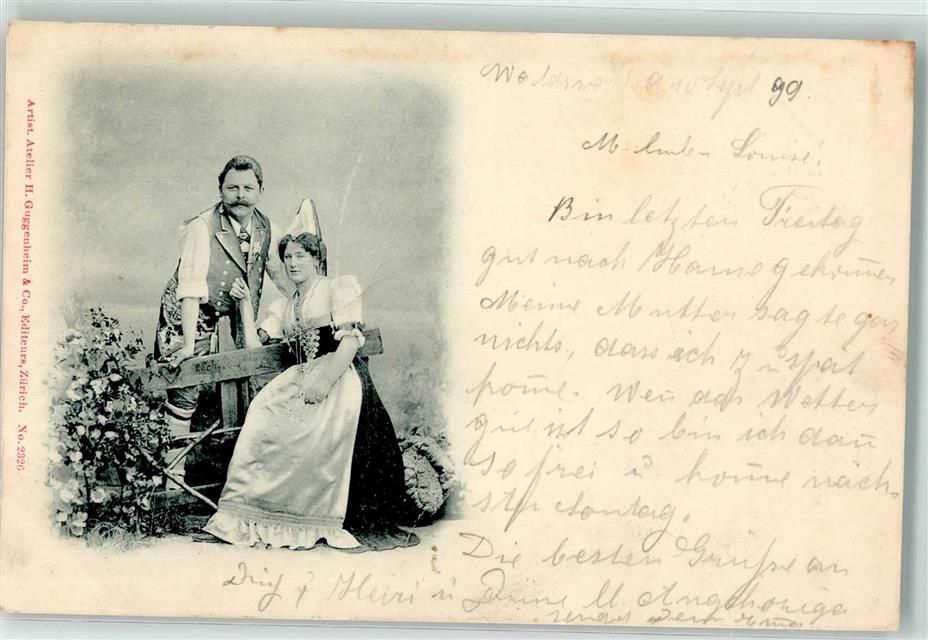 Artist. Atelier H. Guggenheim & Co., Editeurs, Zürich. No. 2326.
Sept 99.
M. Louise!
Bin letzten Freitag
gut nach Hause gekom̅en
Meine Mutter sagte gar
nichts, dass ich zu spät
kom̅e. Wen̅ das Wetter
gut ist so bin ich dan̅
so frei u kom̅e näch-
sten Sontag.
Die besten Grüsse an
Dich u Heiri u Deine Angehörige
sendet Dein